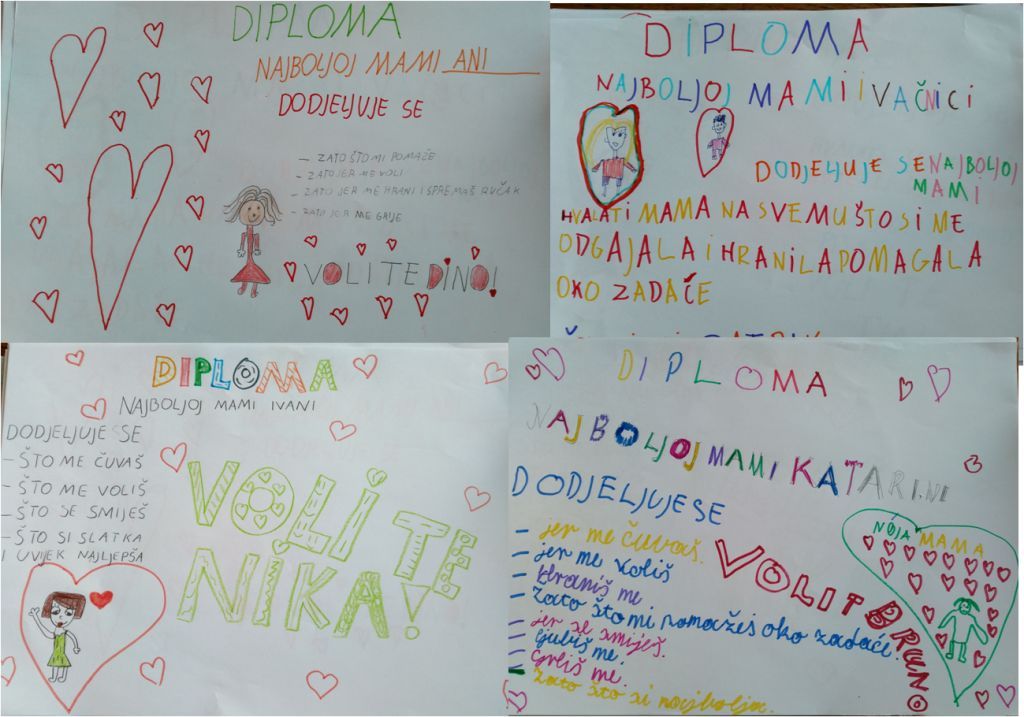 DIPLOMA
NAJBOLJOJ MAMI ANI
DODJELJUJE SE
– ZATO ŠTO MI POMAŽE
– ZATO JER ME VOLI
– ZATO JER ME HRANI I SPREMAŠ RUČAK
– ZATO JER ME GRIJE
VOLI TE DINO!
DIPLOMA
NAJBOLJOJ MAMI IVAČNICI
DODJELJUJE SE NAJBOLJOJ
MAMI
HVALATI MAMA NA SVEMU ŠTO SI ME
ODGAJALA I HRANILA POMAGALA
OKO ZADAĆE
DIPLOMA
NAJBOLJOJ MAMI IVANI
DODJELJUJE SE
– ŠTO ME ČUVAŠ
– ŠTO ME VOLIŠ
– ŠTO SE SMIJEŠ
– ŠTO SI SLATKA
I UVIJEK NAJLJEPŠA
VOLI TE
NIKA!
DIPLOMA
NAJBOLJOJ MAMI KATARINI
DODJELJUJE SE
– jer me čuvaš.
– jer me voliš
– hraniš me
– Zato što mi pomažeš oko zadaće.
– jer se smiješ.
– ljubiš me.
– Grliš me.
– Zato što si najbolja.
VOLI TE BRUNO
MOJA MAMA